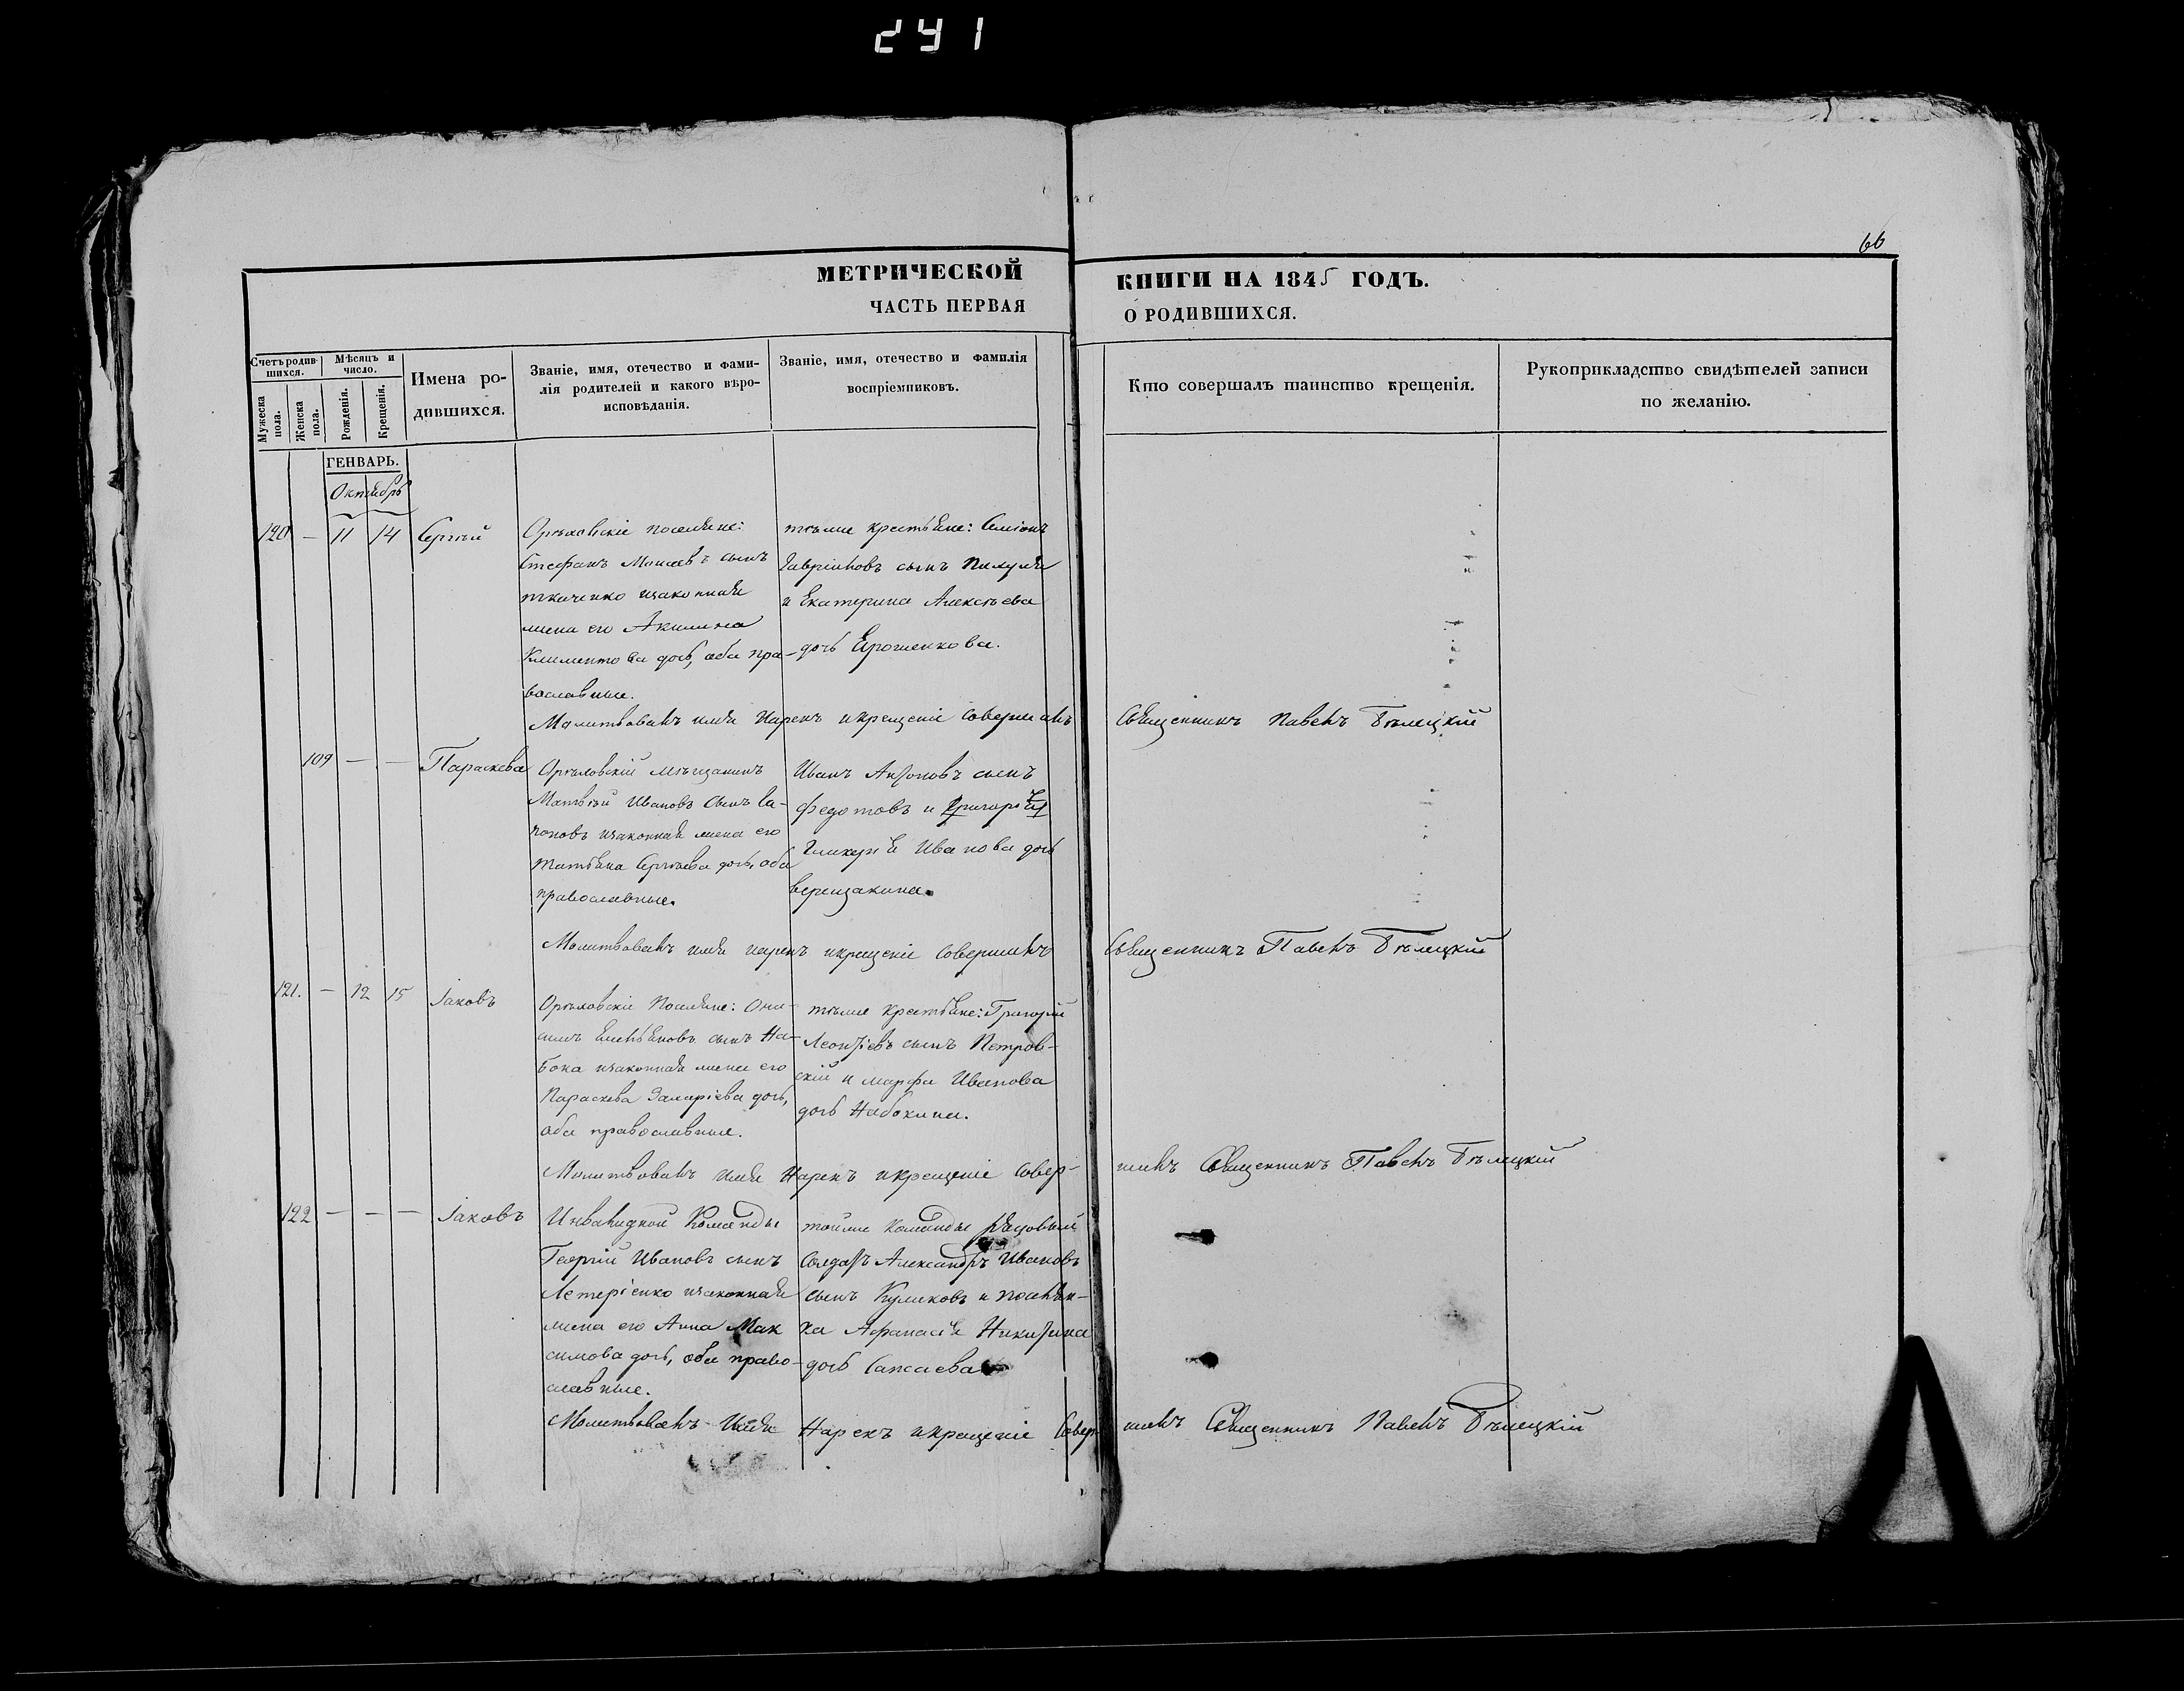 241
66
МЕТРИЧЕСКОЙ КНИГИ НА 1845 ГОДЪ.
ЧАСТЬ ПЕРВАЯ О РОДИВШИХСЯ.
Счетъ родившихся.
Мужеска пола.
Женска пола.
Мѣсяцъ и число.
Рожденія.
Крещенія.
Имена родившихся.
Званіе, имя, отечество и фами-
лія родителей и какого вѣро-
исповѣданія.
Званіе, имя, отечество и фамилія
воспріемниковъ.
Кто совершалъ таинство крещенія.
Рукоприкладство свидѣтелей записи
по желанію.
ГЕНВАРЬ.
Октябрь
120 — 11 14 Сергѣй
Орѣховскіе поселяне:
Стефанъ Моисеевъ сынъ
ткаченко изаконная
жена его Акилина
Климентова дочь, оба пра-
вославные.
тѣже крестьяне: Симіонъ
Гавріиловъ сынъ
и Екатерина Алексѣева
дочь Ерошенкова.
Молитвовалъ имя Нарекъ икрещеніе совершилъ Священникъ Павелъ Бѣлецкій
109 — — Параскева
Орѣховскій мѣщанинъ
Матвѣй Ивановъ сынъ Са-
поновъ изаконная жена его
Татьяна Сергѣева дочь, оба
православные.
Иванъ Антоновъ сынъ
Федотовъ и
Гликерія Иванова дочь
верещакина.
Молитвовалъ имя нарекъ икрещеніе совершилъ Священникъ Павелъ Бѣлецкій
121. — 12 15 Іаковъ
Орѣховскіе Поселяне: Они-
симъ Емельяновъ сынъ На-
бока изаконная жена его
Параскева Захаріева дочь,
оба православные.
тѣже крестьяне: Григорій
Леонтіевъ сынъ Петров-
скій и марфа Иванова
дочь Набокина.
Молитвовалъ имя Нарекъ икрещеніе совер- шилъ Священникъ Павелъ Бѣлецкій
122 — — — Іаковъ
Инвалидной Команды
Георгій Ивановъ сынъ
изаконная
жена его Анна Мак
симова дочь, оба право-
славные.
тойже Команды рядовый
Солдатъ Александръ Ивановъ
сынъ Куликовъ и поселян-
ка Афанасія Никитина
дочь
Молитвовалъ Имя Нарекъ икрещеніе Совер- шилъ Священникъ Павелъ Бѣлецкій